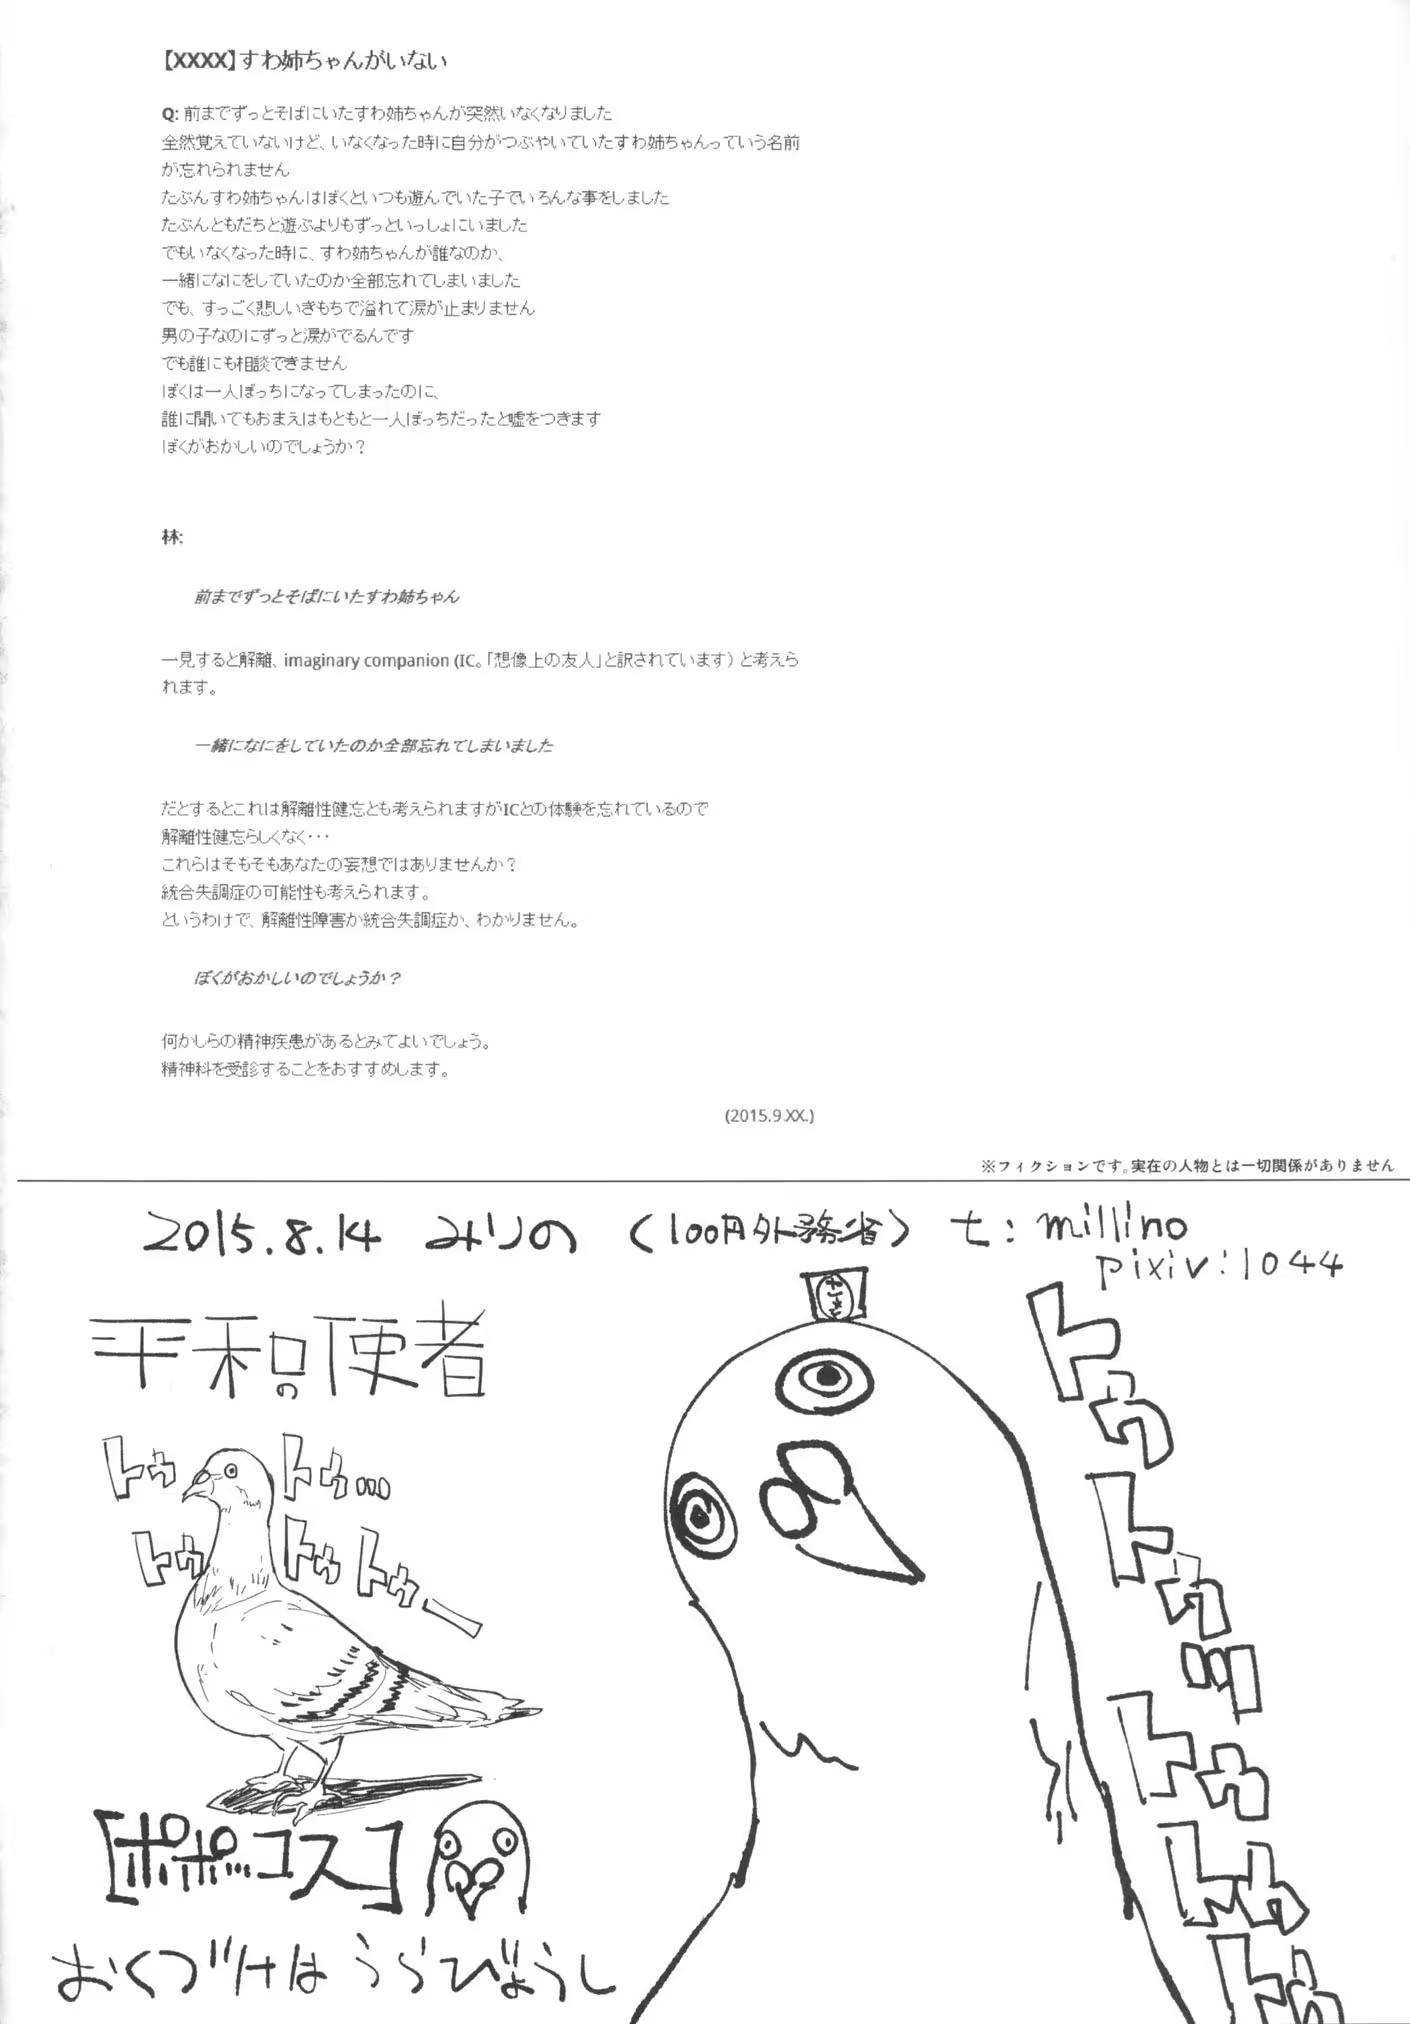 【XXXX】すわ姉ちゃんがいない
Q: 前までずっとそばにいたすわ姉ちゃんが突然いなくなりました
全然覚えていないけど、いなくなった時に自分がつぶやいていたすわ姉ちゃんっていう名前
が忘れられません
たぶんすわ姉ちゃんはぼくといつも遊んでいた子でいろんな事をしました
たぶんともだちと遊ぶよりもずっといっしょにいました
でもいなくなった時に、すわ姉ちゃんが誰なのか、
一緒になにをしていたのか全部忘れてしまいました
でも、すっごく悲しいきもちで溢れて涙が止まりません
男の子なのにずっと涙がでるんです
でも誰にも相談できません
ぼくは一人ぼっちになってしまったのに、
誰に聞いてもおまえはもともと一人ぼっちだったと嘘をつきます
ぼくがおかしいのでしょうか？
林:
前までずっとそばにいたすわ姉ちゃん
一見すると解離、imaginary companion (IC。「想像上の友人」と訳されています） と考えら
れます。
一緒になにをしていたのか全部忘れてしまいました
だとするとこれは解離性健忘とも考えられますがICとの体験を忘れているので
解離性健忘らしくなく・・・
これらはそもそもあなたの妄想ではありませんか？
統合失調症の可能性も考えられます。
というわけで、解離性障害か統合失調症か、わかりません。
ぼくがおかしいのでしょうか？
何かしらの精神疾患があるとみてよいでしょう。
精神科を受診することをおすすめします。
(2015.9.XX.)
※フィクションです。実在の人物とは一切関係がありません
2015.8.14 みりの （100円外務省） t: millino
pixiv:1044
平和の使者
トゥ トゥ…
トゥ トゥ トゥー
[ポポッコス]
おくづけは うらびょうし
トゥ
トゥッ
トゥ
トゥ
トゥ